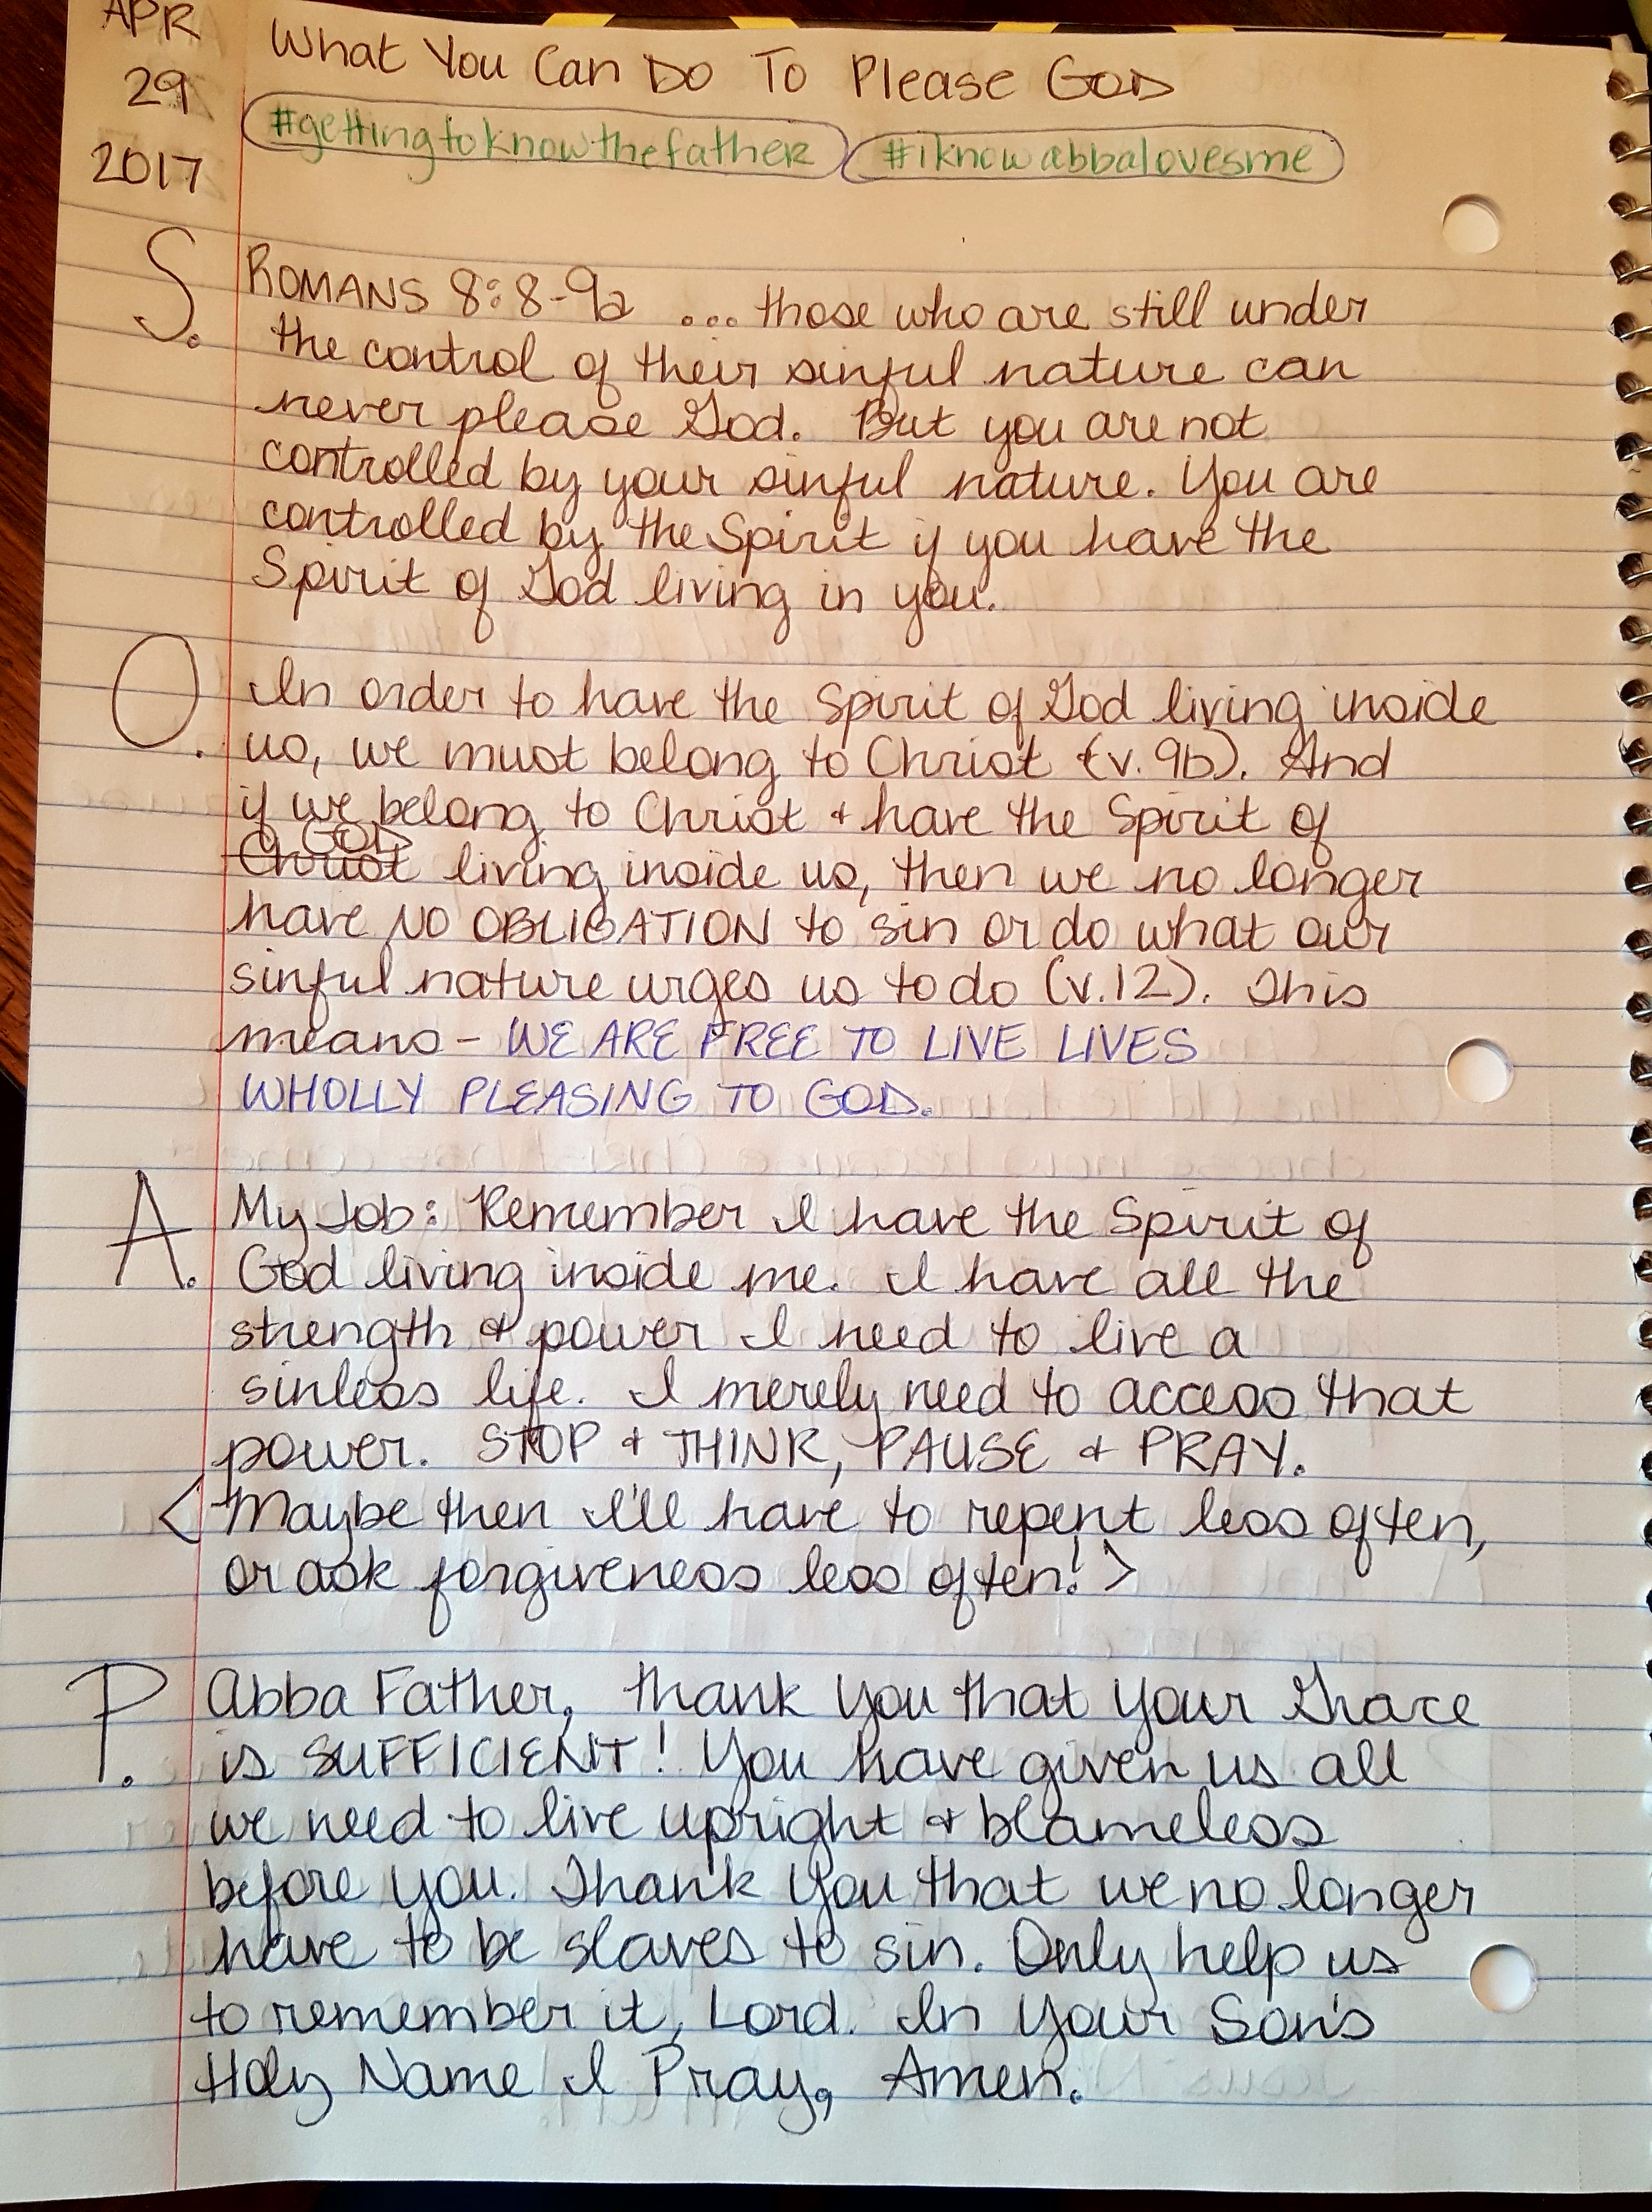 APR
29
2017
What You Can Do To Please GOD
#gettingtoknowthefather #iknowabbalovesme
S.
ROMANS 8:8-9a ... those who are still under
the control of their sinful nature can
never please God. But you are not
controlled by your sinful nature. You are
controlled by the Spirit if you have the
Spirit of God living in you.
O.
In order to have the Spirit of God living inside
us, we must belong to Christ (v. 9b). And
if we belong to Christ + have the Spirit of
GOD
Christ living inside us, then we no longer
have NO OBLIGATION to sin or do what our
sinful nature urges us to do (v.12). This
means - WE ARE FREE TO LIVE LIVES
WHOLLY PLEASING TO GOD.
A.
My Job: Remember I have the Spirit of
God living inside me. I have all the
strength + power I need to live a
sinless life. I merely need to access that
power. STOP + THINK, PAUSE + PRAY.
<Maybe then I'll have to repent less often,
or ask forgiveness less often!>
P.
Abba Father, thank you that your Grace
is SUFFICIENT! You have given us all
we need to live upright + blameless
before you. Thank you that we no longer
have to be slaves to sin. Only help us
to remember it, Lord. In Your Son's
Holy Name I Pray, Amen.